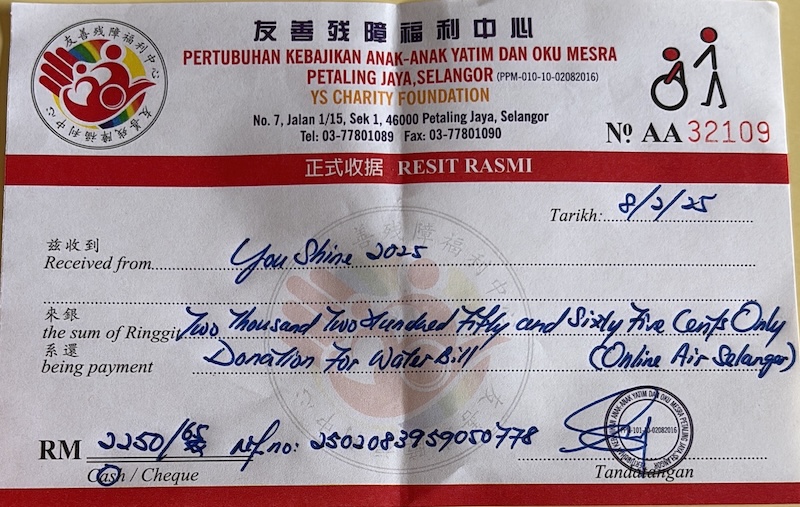 友善残障福利中心
PERTUBUHAN KEBAJIKAN ANAK-ANAK YATIM DAN OKU MESRA
PETALING JAYA,SELANGOR (PPM-010-10-02082016)
YS CHARITY FOUNDATION
No. 7, Jalan 1/15, Sek 1, 46000 Petaling Jaya, Selangor
Tel: 03-77801089 Fax: 03-77801090
友善残障福利中心
友善残障福利中心
Nº AA 32109
正式收据 RESIT RASMI
Tarikh: 8/2/25
兹收到
Received from You Shine 2025
來銀
the sum of Ringgit Two Thousand Two Hundred Fifty and Sixty Five Cents Only
系還
being payment Donation For Water Bill (Online Air Selangor)
RM 2250/65 Ref.no: 2502083959050778
Cash / Cheque
Tandatangan
PERTUBUHAN KEBAJIKAN ANAK-ANAK YATIM DAN OKU MESRA PETALING JAYA, SELANGOR